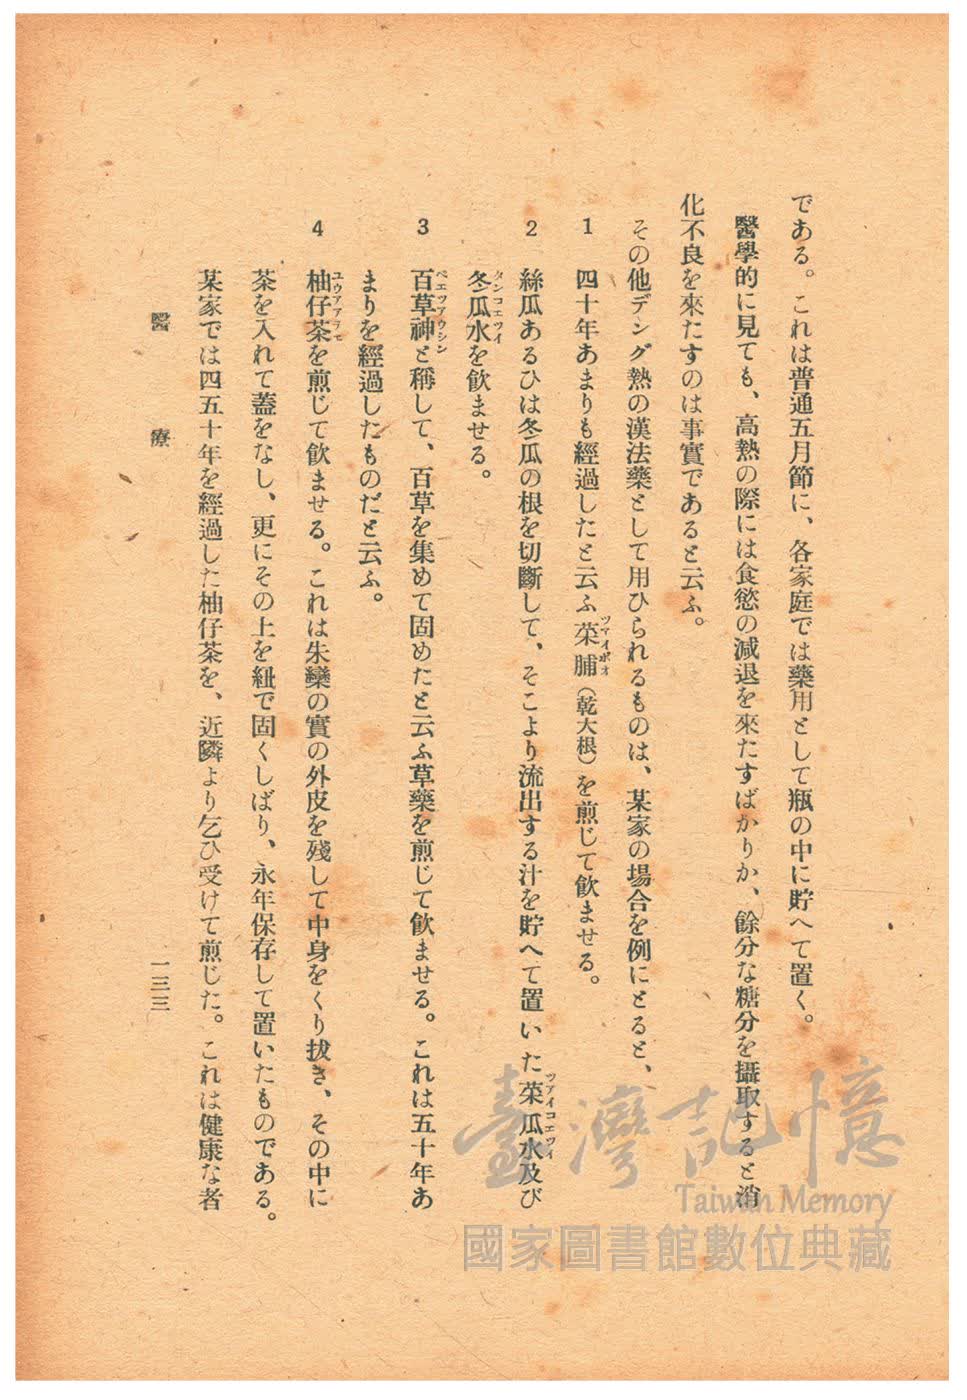 である。これは普通五月節に、各家庭では藥用として瓶の中に貯へて置く。
醫學的に見ても、高熱の際には食慾の減退を來たすばかりか、餘分な糖分を攝取すると消
化不良を來たすのは事實であると云ふ。
その他デング熱の漢法藥として用ひられるものは、某家の場合を例にとると、
1 四十年あまりも經過したと云ふ菜脯（乾大根）を煎じて飮ませる。
ツァイポオ
2 絲瓜あるひは冬瓜の根を切斷して、そこより流出する汁を貯へて置いた菜瓜水及び
ツアイコエツイ
冬瓜水を飮ませる。
タンコエツイ
3 百草神と稱して、百草を集めて固めたと云ふ草藥を煎じて飮ませる。これは五十年あ
ペエツアウシン
まりを經過したものだと云ふ。
4 柚仔茶を煎じて飮ませる。これは朱欒の實の外皮を殘して中身をくり拔き、その中に
ユウアアテエ
茶を入れて蓋をなし、更にその上を紐で固くしばり、永年保存して置いたものである。
某家では四五十年を經過した柚仔茶を、近隣より乞ひ受けて煎じた。これは健康な者
醫療
一三三
臺灣記憶
Taiwan Memory
國家圖書館數位典藏